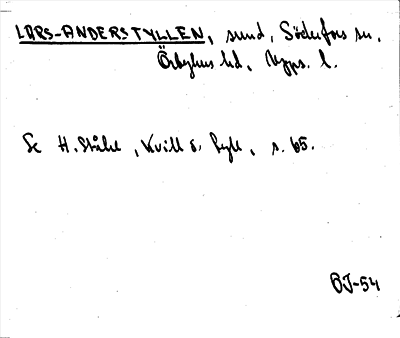 LARS-ANDERSTYLLEN, sund, Söderfors sn.
Örbyhus hd, Upps. l.
Se H. Ståhl, Kvill o. tyll, s. 65.
OJ-54